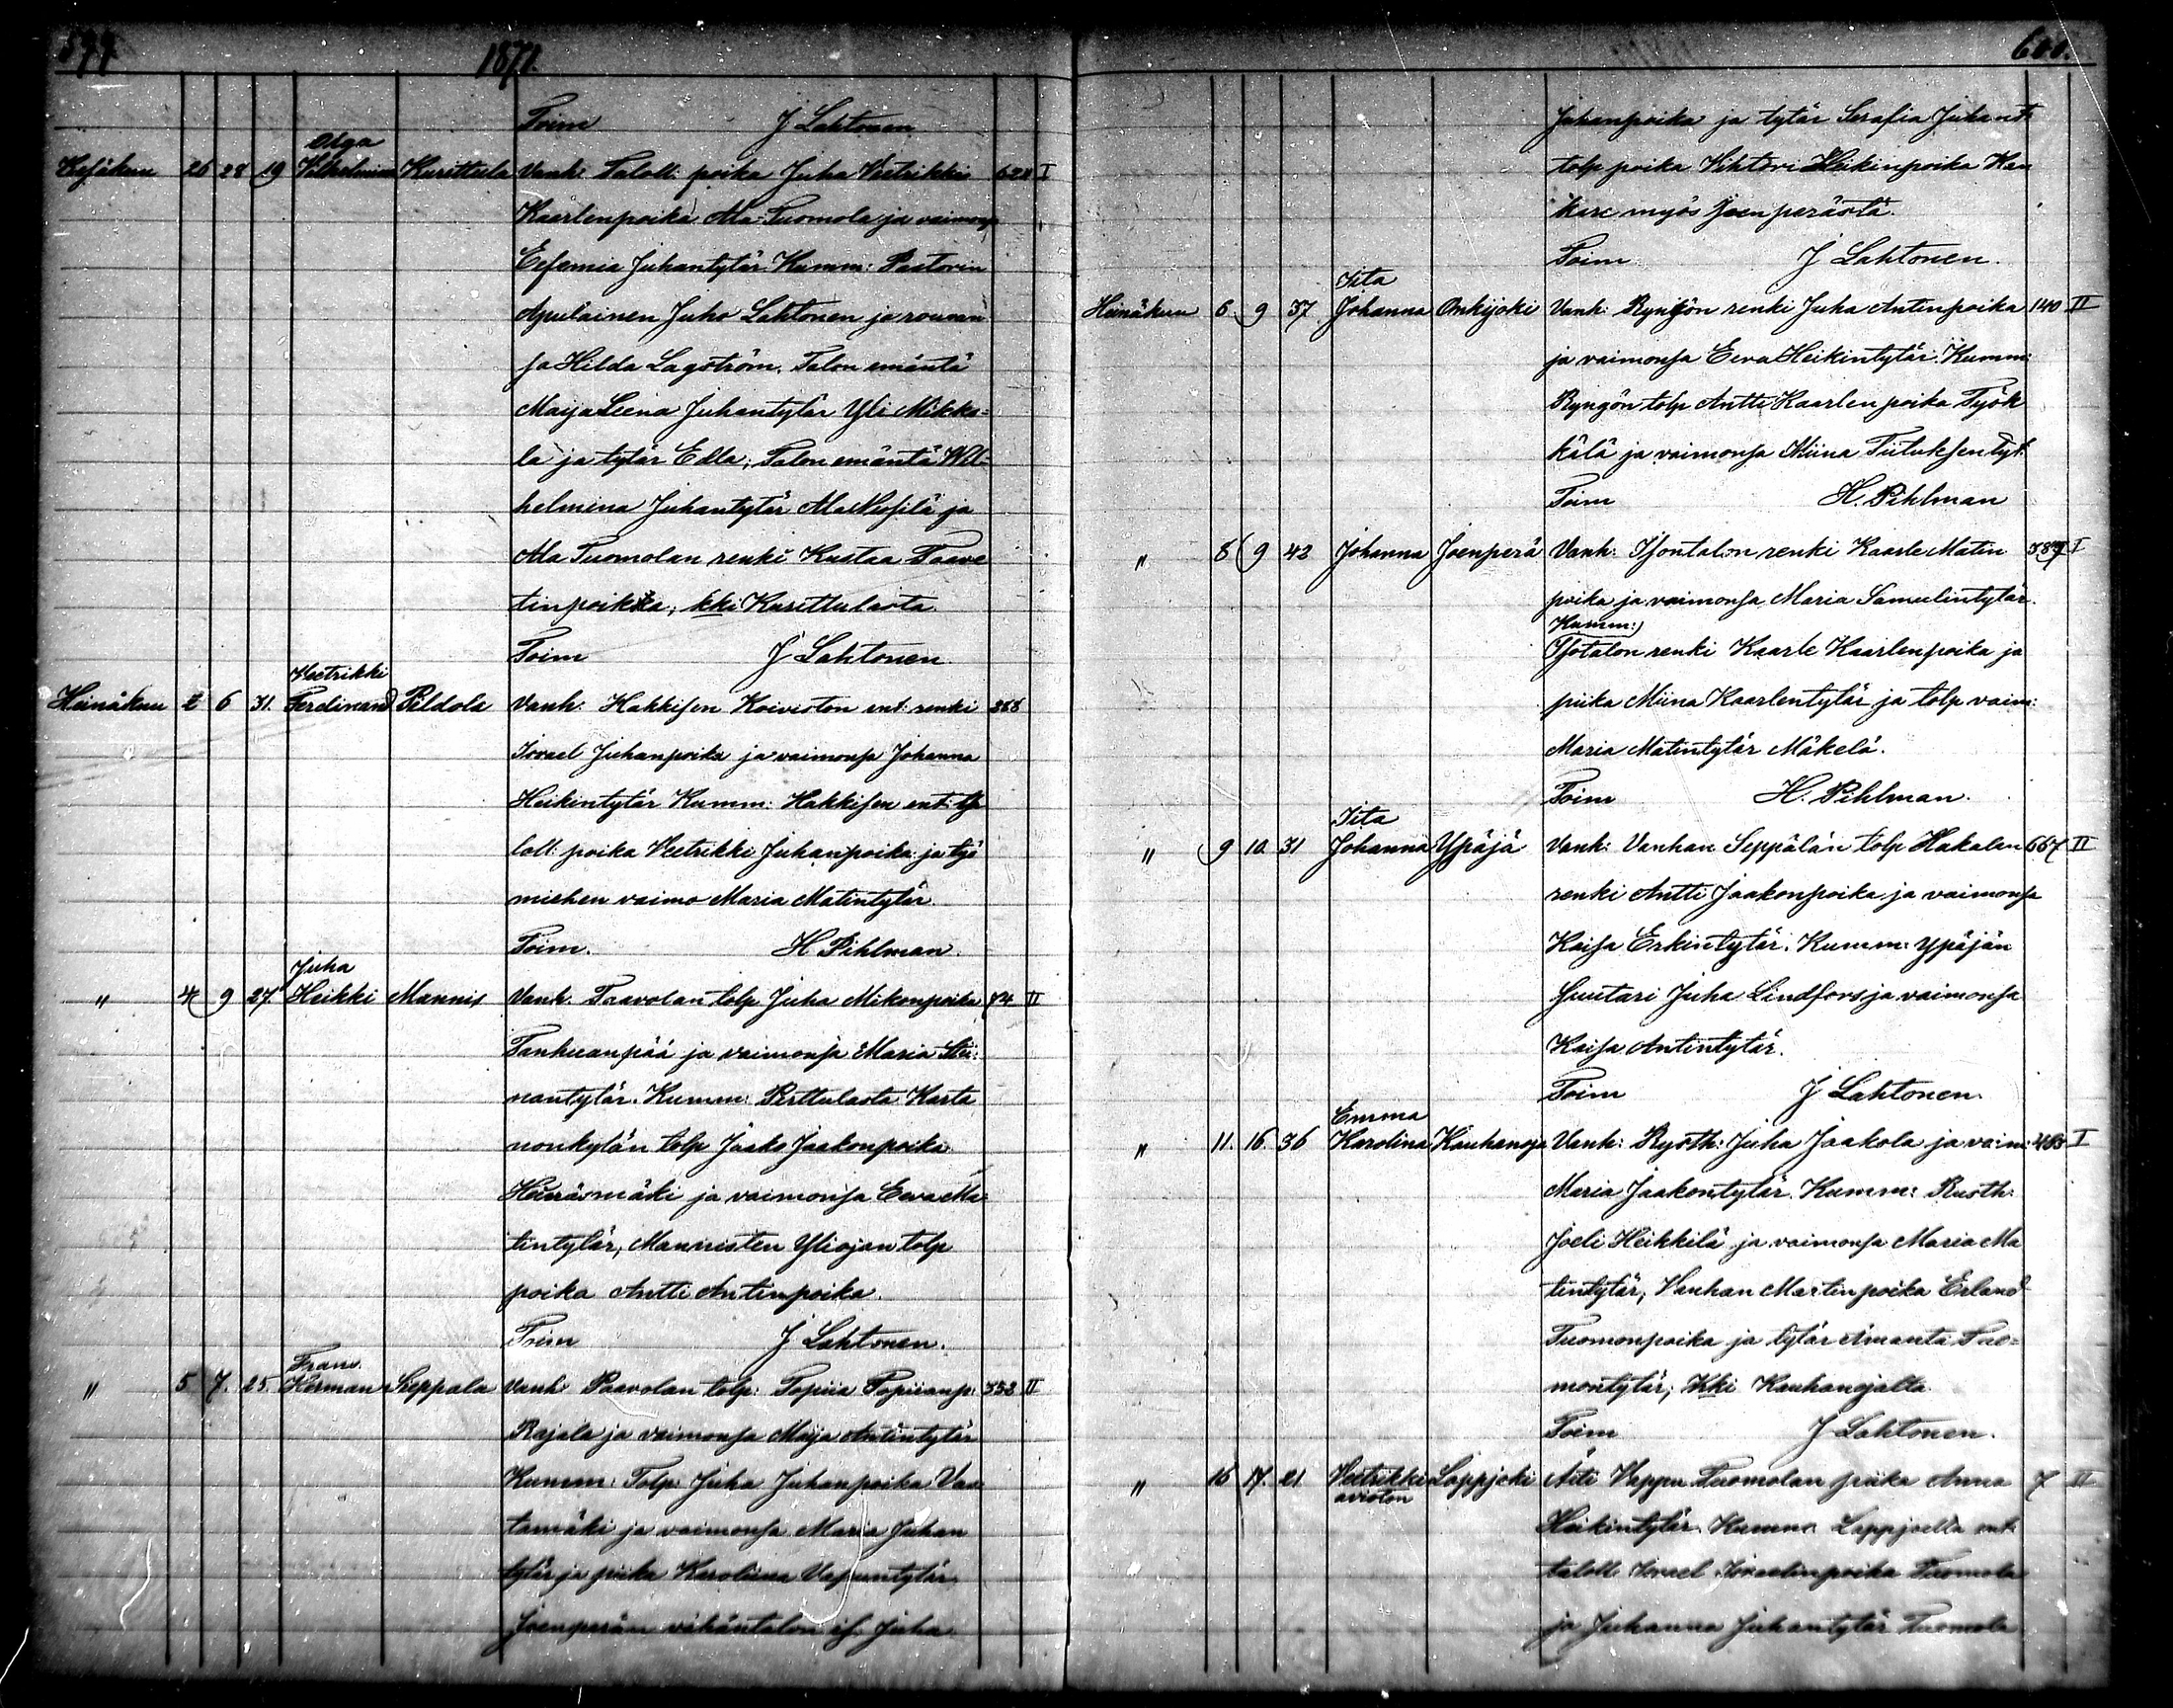 599
1871.
Toim J Lahtonen
Olga
Kesäkuu 26 28 19 Vilhelmina Kurittula Vanh: Taloll: poika Juha Veetrikki 628 I
Kaarlenpoika Ala-Tuomola ja vaimons
Eefemia Juhantytär. Kumm: Pastorin
Apulainen Juho Lahtonen ja rouvan
sa Hilda Lagström. Talon emäntä
Maija Leena Juhantytär Yli Mikko-
la ja tytär Edla, Talon emäntä Wil-
helmina Juhantytär Ala ja
Ala Tuomolan renki Kustaa Taave
tinpoika, kki Kurittulasta
Toim J Lahtonen.
Veetrikki
Heinäkuu 2 6 31. Ferdinand Pildola Vanh: Hakkisen Koiviston ent: renki 368
Israel Juhanpoika ja vaimonsa Johanna
Heikintytär Kumm: Hakkisen ent:
loll: poika Veetrikki Juhanpoika ja työ
miehen vaimo Maria Matintytär
Toim. H Pihlman.
Juha
" 4 9 27 Heikki Mannis Vanh: Taavolan tolp Juha Mikonpoika 74 II
Tanhuanpää ja vaimonsa Maria
nantytär. Kumm: Perttulasta Karta
nonkylän tolp Jaako Jaakonpoika
Heinäsmäki ja vaimonsa Eeva Ma
tintytär, Mannisten Yliojan tolp
poika Antti Antinpoika.
Toim J Lahtonen.
Frans
" 5 7. 25 Herman Seppala Vanh: Paavolan tolp: Topiia Topiianp: 352 II
Rajala ja vaimonsa Maija Antintytär
Kumm: Tolp: Juha Juhanpoika Vaa
tamäki ja vaimonsa Maria Juhan
tytär ja piika Karoliina Vapuntytär
Joenperän vähäntalon is: Juha
600.
Johanpoika ja tytär Serafia Juhant
tolp poika Vihtori Heikinpoika Kan
kare myös Joenperästä.
Toim J Lahtonen.
Iita
Heinäkuu 6. 9 37 Johanna Onkijoki Vanh: Ryngön renki Juha Antinpoika 140 II
ja vaimonsa Eeva Heikintytär. Kumm:
Ryngön tolp Antti Kaarlen poika Työk
kälä ja vaimonsa Miina Tiituksentyt.
Toim H. Pihlman
" 8 9 42 Johanna Joenperä Vanh: Isontalon renki Kaarle Matin I
poika ja vaimonsa Maria Samuelintytär.
Kumm:
Isotalon renki Kaarle Kaarlenpoika ja
piika Miina Kaarlentytär ja tolp vaim:
Maria Matintytär Mäkelä.
Toim H. Pihlman.
Iita
" 9 10 31 Johanna Ypäjä Vanh: Vanhan Seppälän tolp Hakalan 667 II
renki Antti Jaakonpoika ja vaimonsa
Kaisa Erkintytär. Kumm: Ypäjän
Suutari Juha Lindfors ja vaimonsa
Kaisa Antintytär.
Toim J Lahtonen.
Emma
" 11. 16. 36 Karolina Kauhanoja Vanh: Rysth: Juha Jaakola ja vaim: 485 I
Maria Jaakontytär. Kumm: Rusth:
Joeli Heikkilä ja vaimonsa Maria Ma
tintytär, Vanhan Martin poika Erland
Tuomonpoika ja tytär Amanta Tuo-
montytär, Kki Kauhanojalta
Toim J Lahtonen.
" 16 17. 21 Veetrikki Lappjoki Äiti Tuomolan piika Anna 7 II
avioton
Heikintytär. Kumm: Lappjoelta ent:
taloll: Israel Israelinpoika Tuomola
ja Juhanna Juhantytär Tuomola